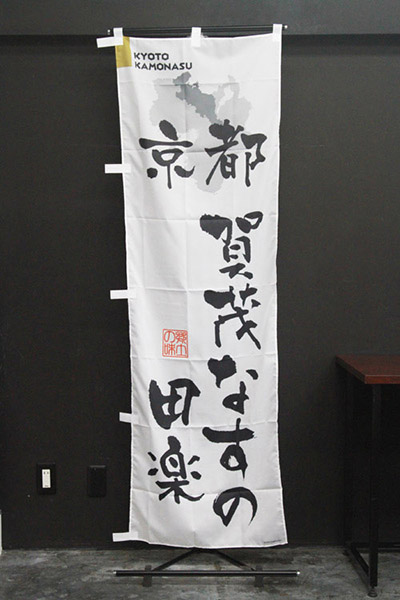 KYOTO
KAMONASU
京都
賀茂なすの
田楽